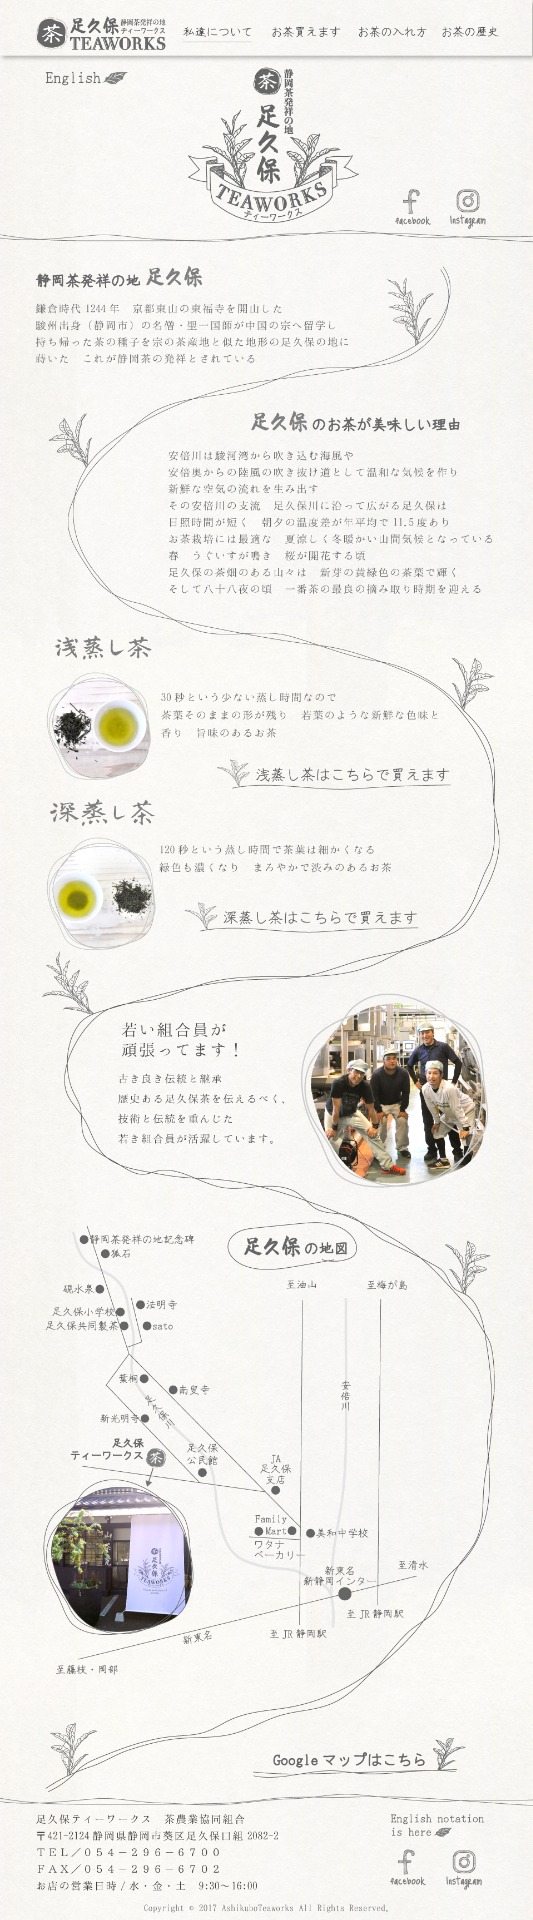 茶 足久保 静岡茶発祥の地 ティーワークス TEAWORKS
私達について お茶買えます お茶の入れ方 お茶の歴史
English
茶 静岡茶発祥の地
足久保
TEAWORKS
ティーワークス
facebook Instagram
静岡茶発祥の地 足久保
鎌倉時代 1244 年 京都東山の東福寺を開山した
駿州出身（静岡市）の名僧・聖一国師が中国の宗へ留学し
持ち帰った茶の種子を宗の茶産地と似た地形の足久保の地に
蒔いた これが静岡茶の発祥とされている
足久保のお茶が美味しい理由
安倍川は駿河湾から吹き込む海風や
安倍奥からの陸風の吹き抜け道として温和な気候を作り
新鮮な空気の流れを生み出す
その安倍川の支流 足久保川に沿って広がる足久保は
日照時間が短く 朝夕の温度差が年平均で 11.5 度あり
お茶栽培には最適な 夏涼しく冬暖かい山間気候となっている
春 うぐいすが鳴き 桜が開花する頃
足久保の茶畑のある山々は 新芽の黄緑色の茶葉で輝く
そして八十八夜の頃 一番茶の最良の摘み取り時期を迎える
浅蒸し茶
30 秒という少ない蒸し時間なので
茶葉そのままの形が残り 若葉のような新鮮な色味と
香り 旨味のあるお茶
浅蒸し茶はこちらで買えます
深蒸し茶
120 秒という蒸し時間で茶葉は細かくなる
緑色も濃くなり まろやかで渋みのあるお茶
深蒸し茶はこちらで買えます
若い組合員が
頑張ってます！
古き良き伝統と継承
歴史ある足久保茶を伝えるべく、
技術と伝統を重んじた
若き組合員が活躍しています。
足久保の地図
静岡茶発祥の地記念碑
狐石
硯水泉
足久保小学校
法明寺
足久保共同製茶
sato
至油山
至梅が島
葉桐
南叟寺
足久保川
安倍川
新光明寺
足久保
ティーワークス 茶
足久保
公民館
JA
足久保
支店
Family
Mart
美和中学校
ワタナ
ベーカリー
新東名
新静岡インター
至清水
至 JR 静岡駅
至 JR 静岡駅
新東名
至藤枝・岡部
足久保
TEAWORKS
Google マップはこちら
足久保ティーワークス 茶農業協同組合
〒421-2124 静岡県静岡市葵区足久保口組 2082-2
ＴＥＬ／０５４－２９６－６７００
ＦＡＸ／０５４－２９６－６７０２
お店の営業日時 / 水・金・土 9:30〜16:00
English notation
is here
facebook Instagram
Copyright © 2017 AshikuboTeaworks All Rights Reserved.